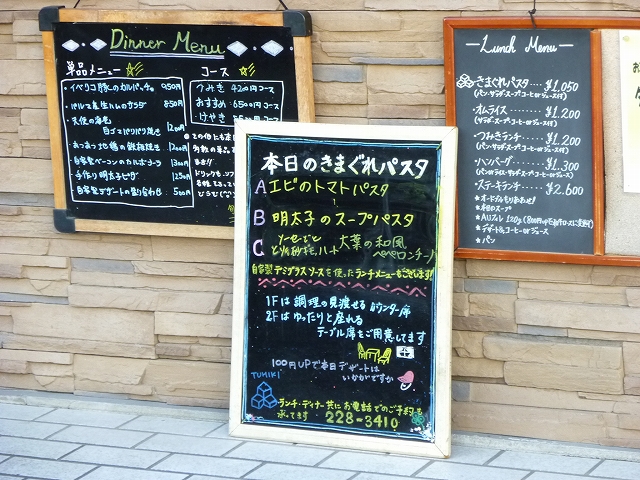 Dinner Menu
単品メニュー
イベリコ豚のカルパッチョ 950円
パルマ産生ハムのサラダ 850円
天使の海老
1200円
1200円
自家製ベーコンのカルボナーラ 1300円
手作り明太子ピザ 1250円
自家製デザートの盛り合わせ 500円
コース
つみき 4200円コース
おすすめ 6500円コース
けやき
Lunch Menu
きまぐれパスタ‥‥¥1,050
(パン・サラダ・スープ・コーヒーorジュース付)
・オムライス‥‥‥¥1,200
(サラダ・スープ・コーヒーorジュース付)
・つみきランチ‥‥¥1,200
・ハンバーグ‥‥‥¥1,300
・ステーキランチ‥‥¥2,600
★本日のスープ
★デザート&コーヒーorジュース
★パン
本日のきまぐれパスタ
A エビのトマトパスタ
B 明太子のスープパスタ
C ソーセージと
大葉の和風
ペペロンチーノ
自家製デミグラスソースを使ったランチメニューもございます!
1Fは調理の見渡せるカウンター席
2Fはゆったりと座れる
テーブル席をご用意してます
100円UPで本日デザートは
いかがですか
TUMIKI
ランチ・ディナー共にお電話でのご予約も
承てます 228-3410